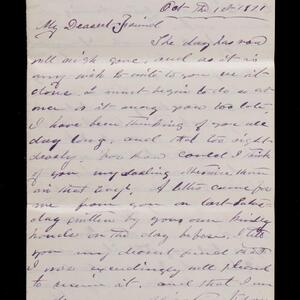 Oct the 1st 18
My Dearest Friend
The day has now
well nigh gone, and as it is
my wish to write to you ere it
close I must begin to do so at
once is it may you too late.
I have been thinking of you all
day long, and that too right
dearly. for how could I think
of you my darling otherwise than
in that way. A letter came for
me from you on last Satur-
day written by your own kindly
hands on the day before, I tell
you my dearest friend that
I was exceedingly well pleased
to receive it, and that I am